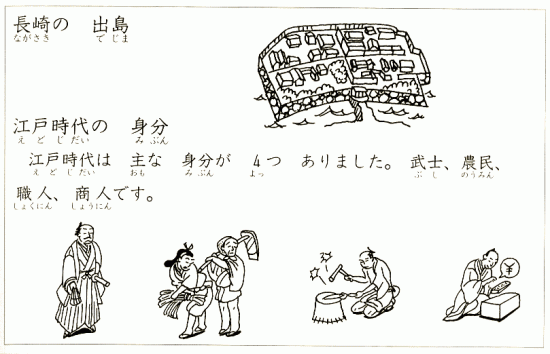 長崎の 出島
ながさき で じま
江戸時代の 身分
え ど じ だい み ぶん
江戸時代は 主な 身分が 4つ ありました。 武士、農民、
え ど じ だい おも み ぶん よっ ぶ し のうみん
職人、商人です。
しょくにん しょうにん
¥